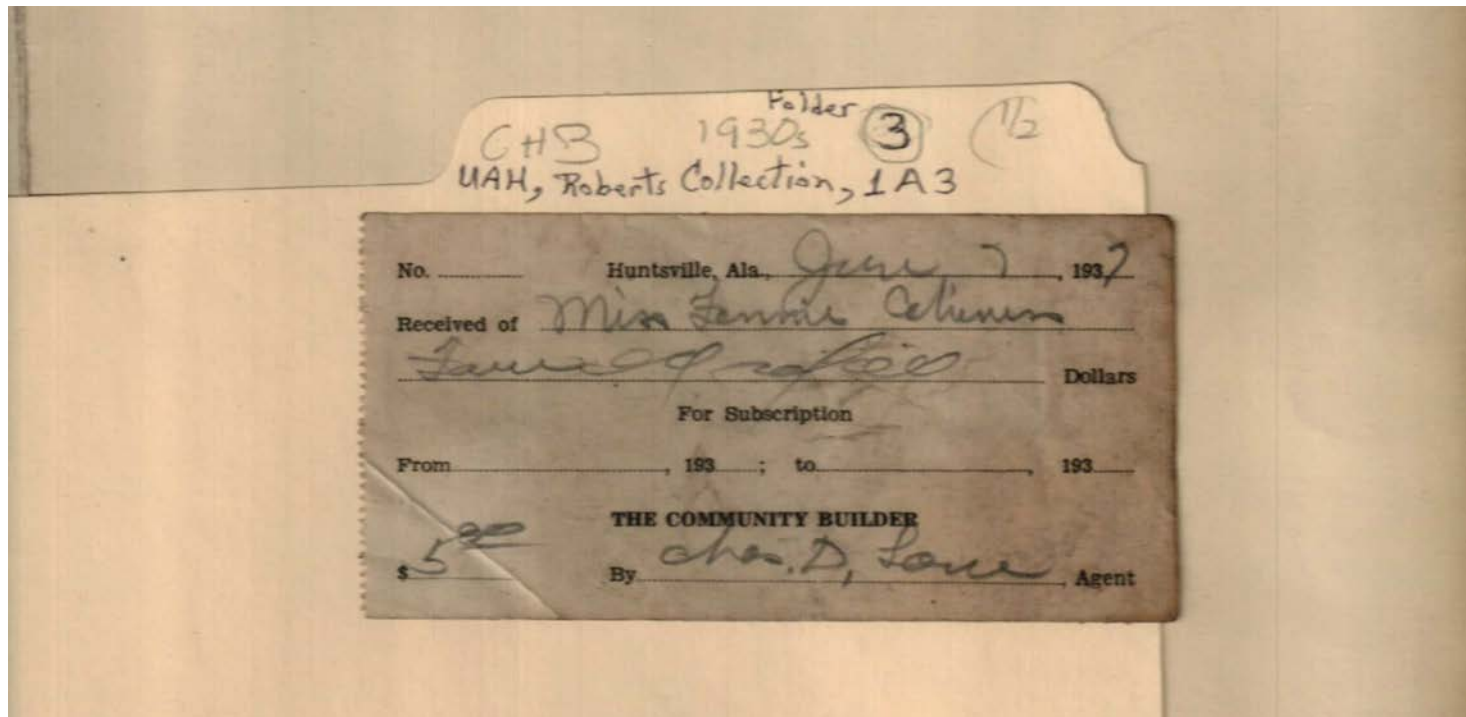 Folder
CHB 1930s 3 (1/2
UAH, Roberts Collection, 1A3
No. Huntsville, Ala., June 7, 1937
Received of Miss Fannie
Dollars
For Subscription
From , 193 ; to , 193
THE COMMUNITY BUILDER
$5 00 By Chas. D, Lane, Agent